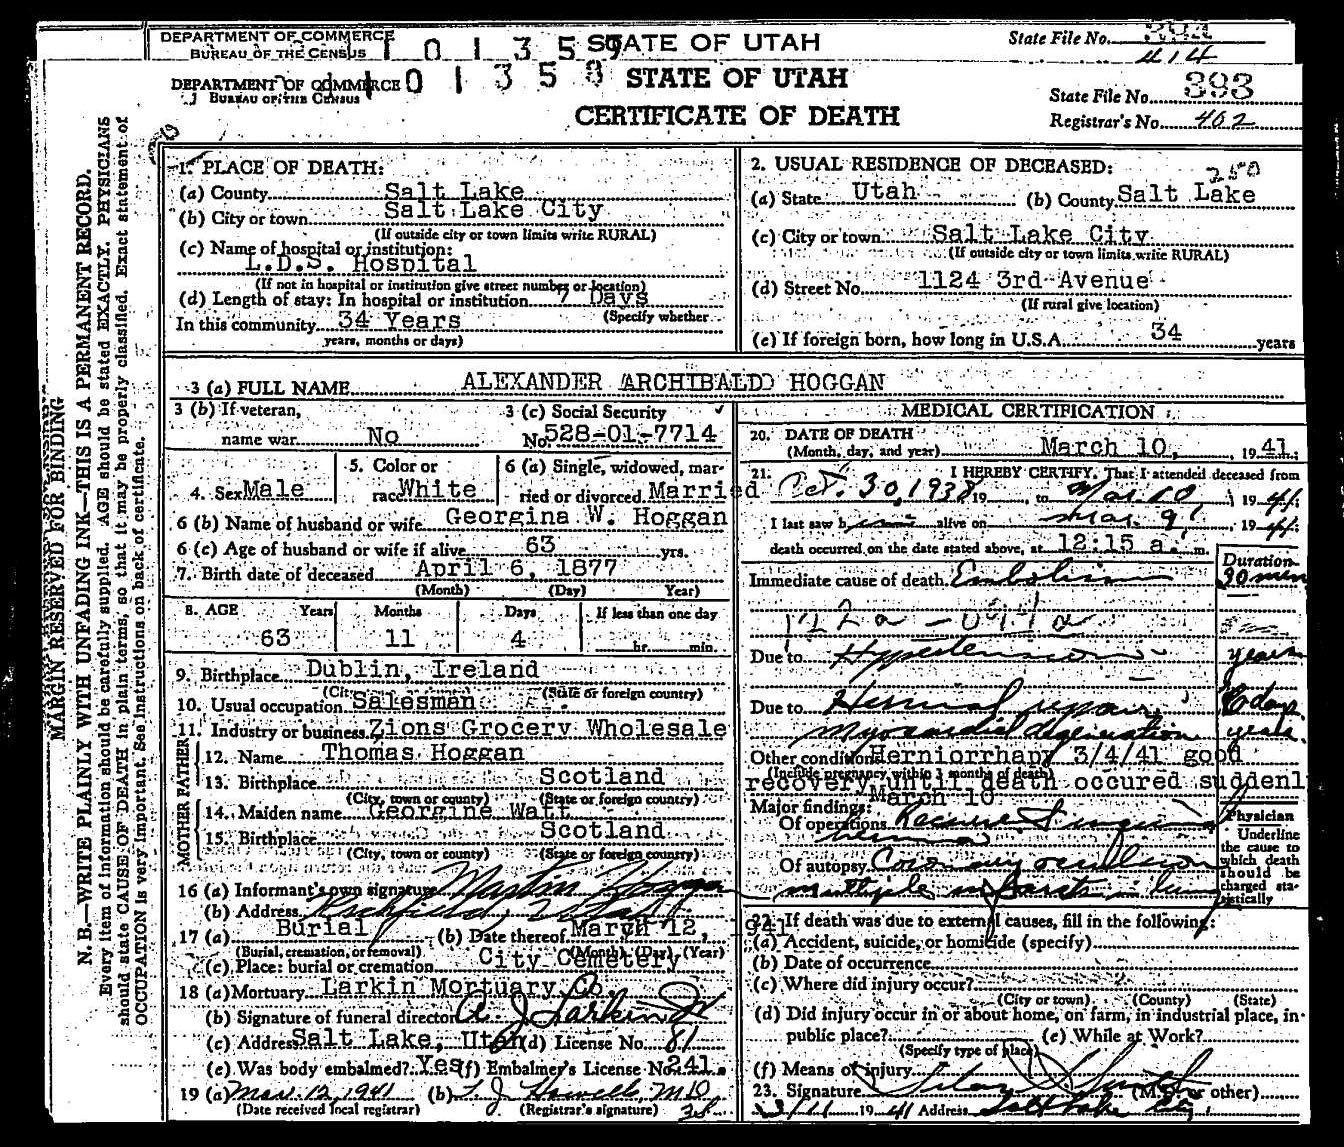 DEPARTMENT OF COMMERCE
BUREAU OF THE CENSUS
STATE OF UTAH
State File No.
414
DEPARTMENT OF COMMERCE
BUREAU OF THE CENSUS
STATE OF UTAH
CERTIFICATE OF DEATH
State File No. 393
Registrar's No. 402
MARGIN RESERVED FOR BINDING
N. B.—WRITE PLAINLY WITH UNFADING INK—THIS IS A PERMANENT RECORD.
Every item of information should be carefully supplied. AGE should be stated EXACTLY. PHYSICIANS
should state CAUSE OF DEATH in plain terms, so that it may be properly classified. Exact statement of
OCCUPATION is very important. See instructions on back of certificate.
1. PLACE OF DEATH:
(a) County Salt Lake
(b) City or town Salt Lake City
(If outside city or town limits write RURAL)
(c) Name of hospital or institution:
L.D.S. Hospital
(If not in hospital or institution give street number or location)
(d) Length of stay: In hospital or institution 7 Days
(Specify whether
In this community 34 Years
years, months or days)
2. USUAL RESIDENCE OF DECEASED:
250
(a) State Utah (b) County Salt Lake
(c) City or town Salt Lake City
(If outside city or town limits write RURAL)
(d) Street No. 1124 3rd Avenue
(If rural give location)
(e) If foreign born, how long in U.S.A. 34 years
3 (a) FULL NAME ALEXANDER ARCHIBALD HOGGAN
3 (b) If veteran,
name war No
3 (c) Social Security
No. 528-01-7714
4. Sex Male
5. Color or
race White
6 (a) Single, widowed, mar-
ried or divorced Married
6 (b) Name of husband or wife Georgina W. Hoggan
6 (c) Age of husband or wife if alive 63 yrs.
7. Birth date of deceased April 6, 1877
(Month) (Day) Year)
8. AGE Years Months Days If less than one day
63 11 4 hr. min.
9. Birthplace Dublin, Ireland
(City (State or foreign country)
10. Usual occupation Salesman
11. Industry or business Zions Grocery Wholesale
FATHER
12. Name Thomas Hoggan
13. Birthplace Scotland
(City, town or county) (State or foreign country)
MOTHER
14. Maiden name Georgine Watt
15. Birthplace Scotland
(City, town or county) (State or foreign country)
16 (a) Informant's own signature Hoggan
(b) Address Richfield, Utah
17 (a) Burial (b) Date thereof March 12, 1941
(Burial, cremation, or removal) (Month) (Day) (Year)
(c) Place: burial or cremation City Cemetery
18 (a) Mortuary Larkin Mortuary Co.
(b) Signature of funeral director A. J. Larkin Jr
(c) Address Salt Lake, Utah (d) License No. 81
(e) Was body embalmed? Yes (f) Embalmer's License No. 241.
19 (a) Mar. 12, 1941 (b) T. J. Howells, M.D.
(Date received local registrar) (Registrar's signature)
MEDICAL CERTIFICATION
20. DATE OF DEATH
(Month, day, and year) March 10, , 1941.
21. I HEREBY CERTIFY, That I attended deceased from
Oct. 30, 1938 19 , to Mar. 10 , 1941.
I last saw him alive on Mar. 9 , 1941.
death occurred on the date stated above, at 12:15 a. m.
Duration
Immediate cause of death Embolism 30 min
Due to Hypertension years
Due to Hernial repair 6 days
Myocardial degeneration years.
Other conditions Herniorrhapy 3/4/41 good
(Include pregnancy within 3 months of death)
recovery until death occured suddenl
March 10
Major findings:
Of operations
hernia
Of autopsy Coronary occlusion
multiple infarcts in lung
Physician
Underline
the cause to
which death
should be
charged sta-
tistically
22. If death was due to external causes, fill in the following:
(a) Accident, suicide, or homicide (specify)
(b) Date of occurrence
(c) Where did injury occur?
(City or town) (County) (State)
(d) Did injury occur in or about home, on farm, in industrial place, in
public place? (e) While at Work?
(Specify type of place)
(f) Means of injury
23. Signature Silas S. Smith (M.D. or other)
3/11 1941 Address Salt Lake City